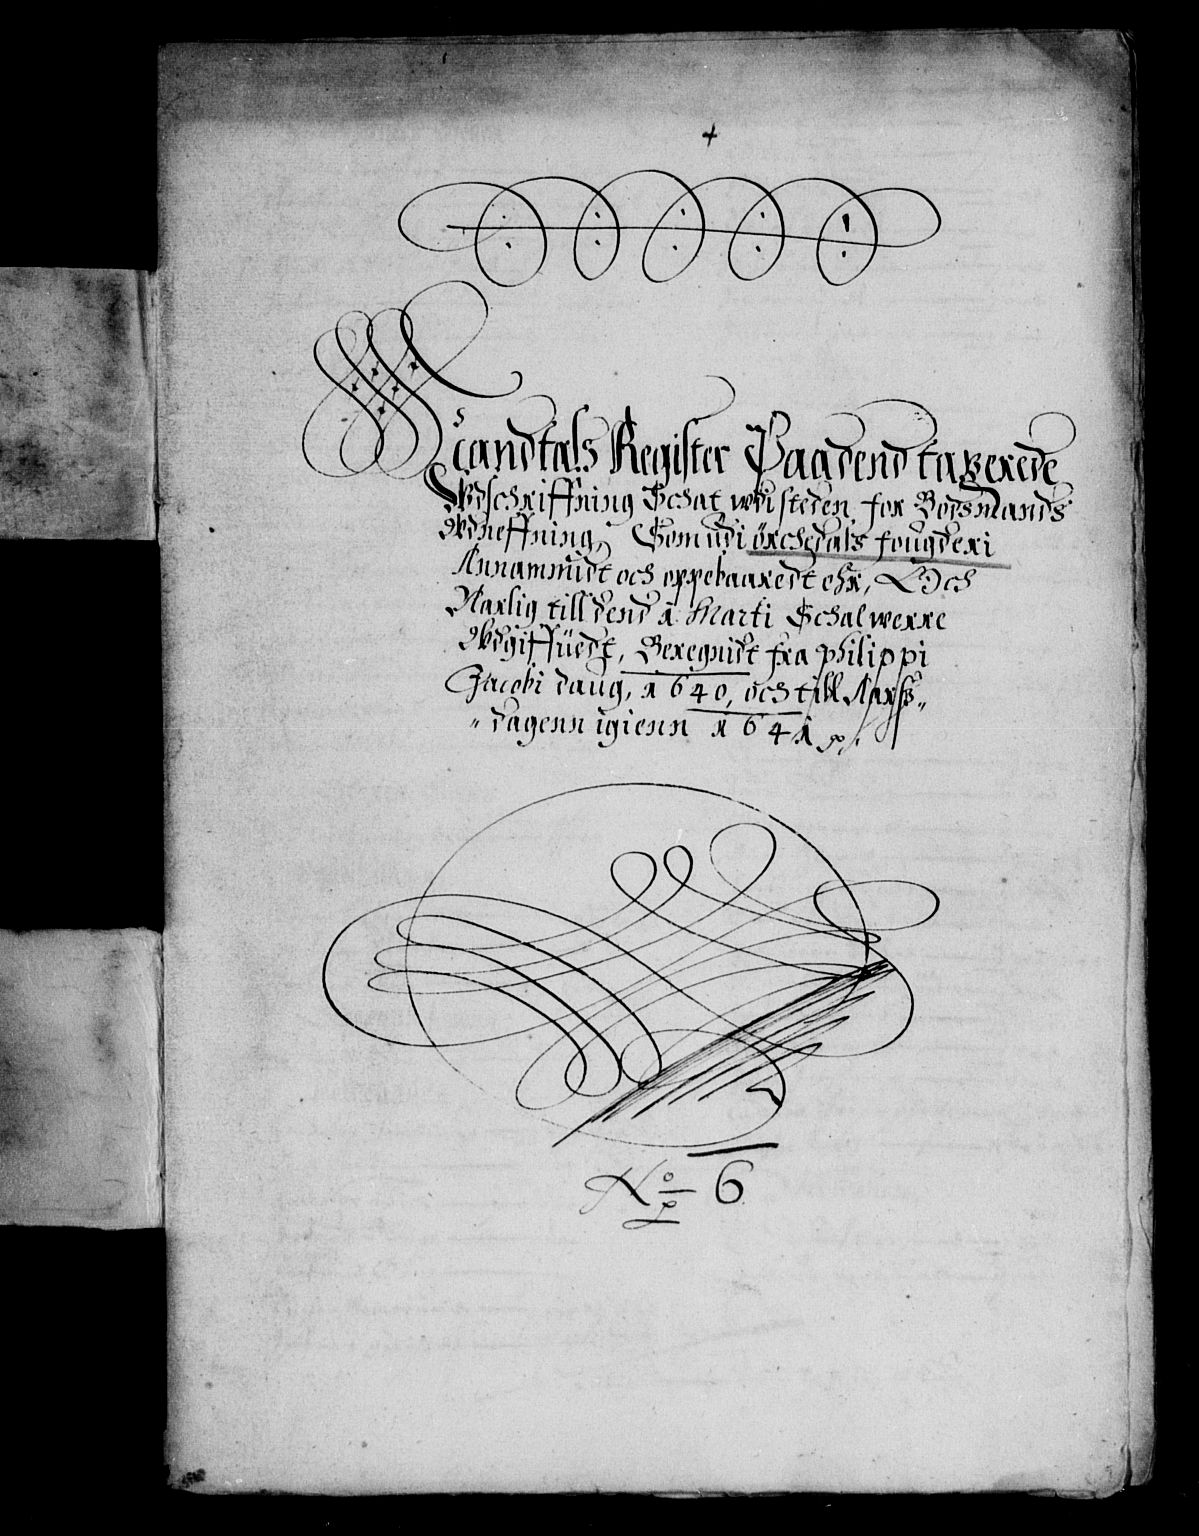 Mandtals Register Paa dend taxerede
Vdschriffning Schat wdi steden for Bodsmands
Vdneffning, Som udi örchedals fougderi
Annammidt och oppebaaredt ehr, Och
Aarlig till dend 1 Marti Schal werre
Vdgiffuedt, Beregnidt fra philippi
Jacobi daug, 1640, och till Aarss„
„dagenn igienn 1641
No 6